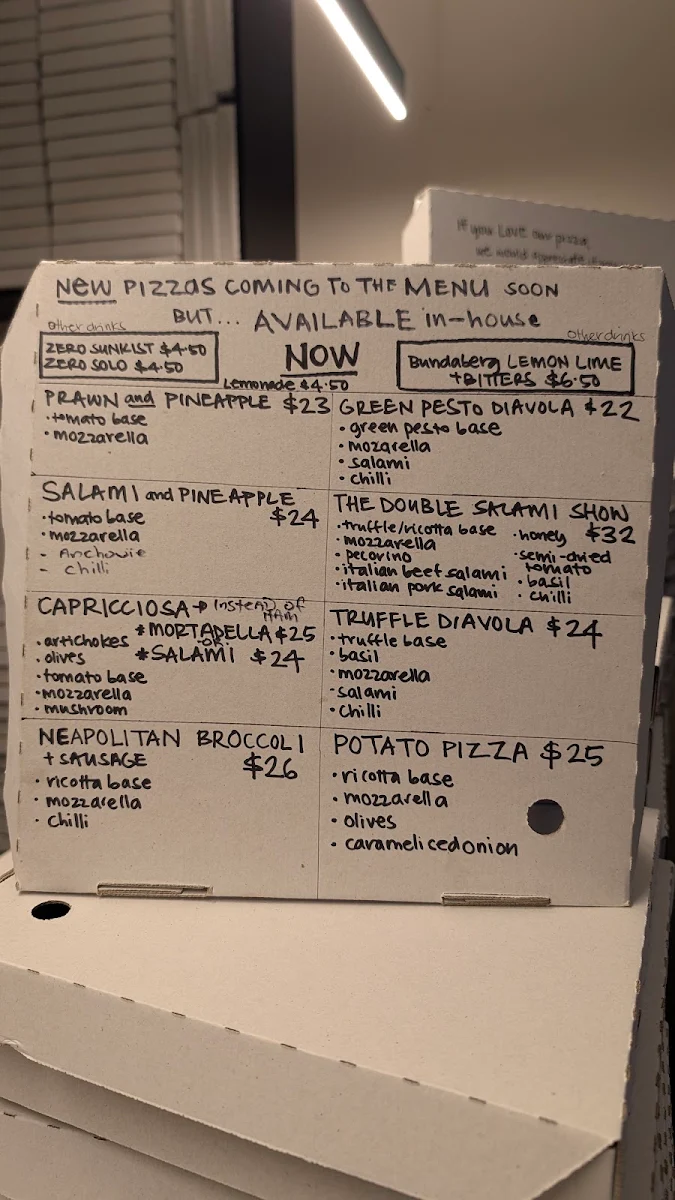 If you Love our pizza,
we would appreciate if
NEW PIZZAS COMING TO THE MENU SOON
BUT... AVAILABLE in-house
NOW
other drinks
ZERO SUNKIST $4.50
ZERO SOLO $4.50
Lemonade $4.50
other drinks
Bundaberg LEMON LIME
+BITTERS $6.50
PRAWN and PINEAPPLE $23
• tomato base
• mozzarella
GREEN PESTO DIAVOLA $22
• green pesto base
• mozarella
• salami
• chilli
SALAMI and PINEAPPLE
$24
• tomato base
• mozzarella
- Anchovie
- chilli
THE DOUBLE SALAMI SHOW
$32
• truffle/ricotta base
• mozzarella
• pecorino
• italian beef salami
• italian pork salami
• honey
• semi-dried
tomato
• basil
• chilli
CAPRICCIOSA → instead of
HAM
* MORTADELLA $25
-OR-
* SALAMI $24
• artichokes
• olives
• tomato base
• mozzarella
• mushroom
TRUFFLE DIAVOLA $24
• truffle base
• basil
• mozzarella
• salami
• chilli
NEAPOLITAN BROCCOLI
+ SAUSAGE $26
• ricotta base
• mozzarella
• chilli
POTATO PIZZA $25
• ricotta base
• mozzarella
• olives
• carameliced onion